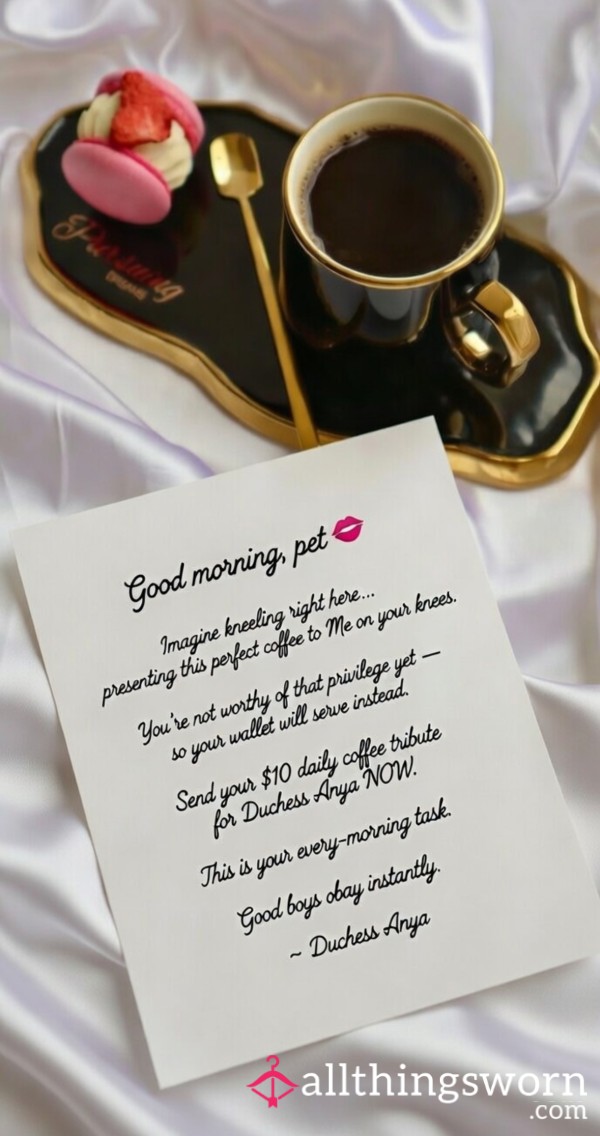 Pursuing
DREAMS
Good morning, pet💋
Imagine kneeling right here...
presenting this perfect coffee to Me on your knees.
You're not worthy of that privilege yet —
so your wallet will serve instead.
Send your $10 daily coffee tribute
for Duchess Anya NOW.
This is your every-morning task.
Good boys obay instantly.
~ Duchess Anya
allthingsworn
.com